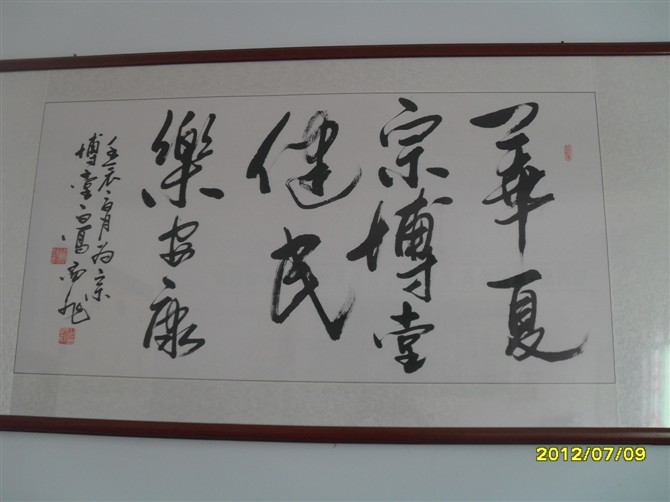 華夏
宗博堂
健民
樂安康
壬辰
為宗
博堂
2012/07/09